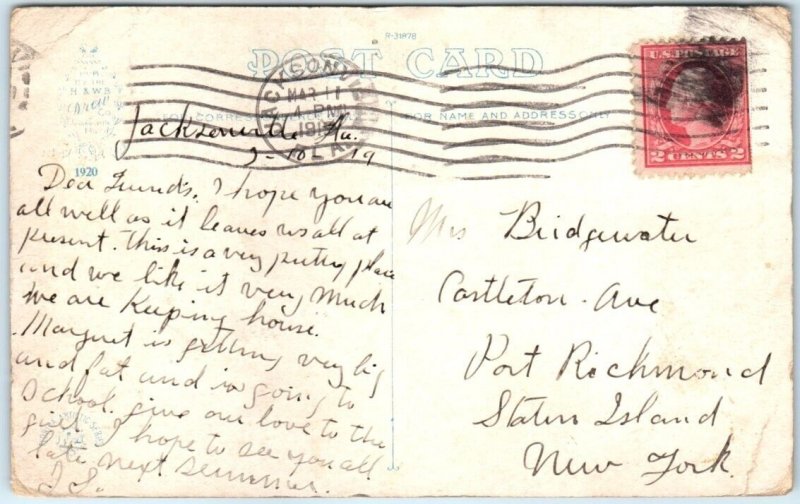 R-31878
POST CARD
JACKSONVILLE
MAR 11
4 PM
FLA
FOR CORRESPONDENCE
FOR NAME AND ADDRESS ONLY
U.S. POSTAGE
2 CENTS 2
1920
Jacksonville Fla.
3-10-19
Dear Friends. I hope you are
all well as it leaves us all at
present. This is a very pretty place
and we like it very much
we are keeping house.
Margret is getting very big
and fat and is going to
School. give our love to the
I hope to see you all
late next summer.
Mrs Bridgewater
Castleton. Ave
Port Richmond
Staten Island
New York.